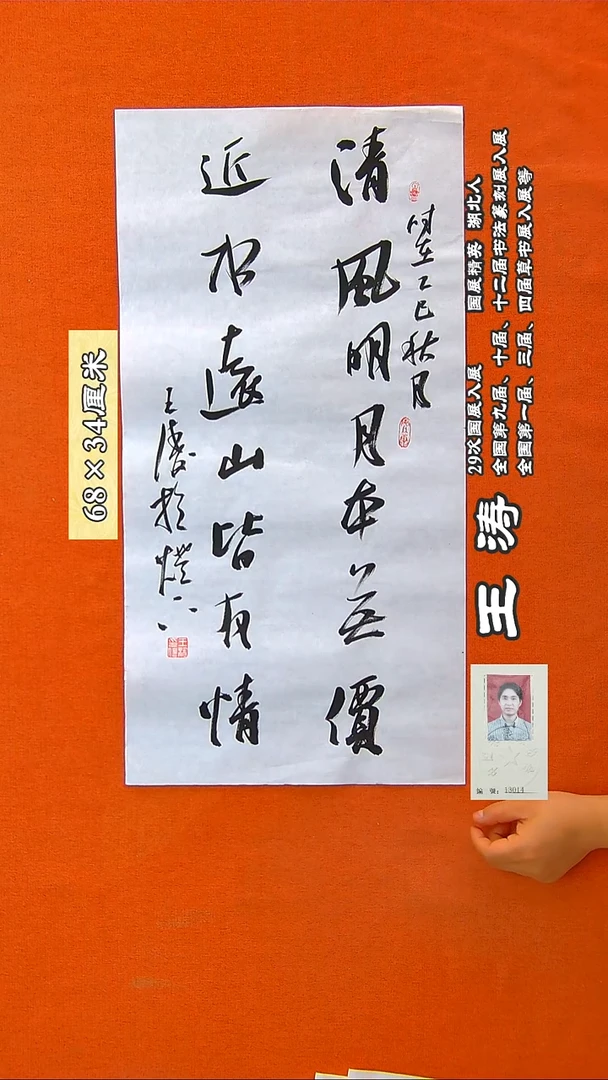 清風明月本无價
時在乙巳秋月
近水遠山皆有情
王濤於燈下
68×34厘米
29次国展入展 国展精英 湖北人
全国第九届、十届、十二届书法篆刻展入展
全国第一届、三届、四届草书展入展等
王涛
编號：13014